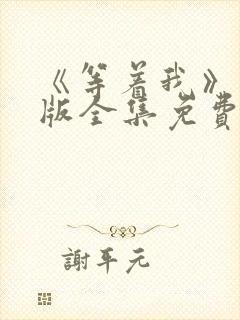 《等着我》
版全集免費
謝平元